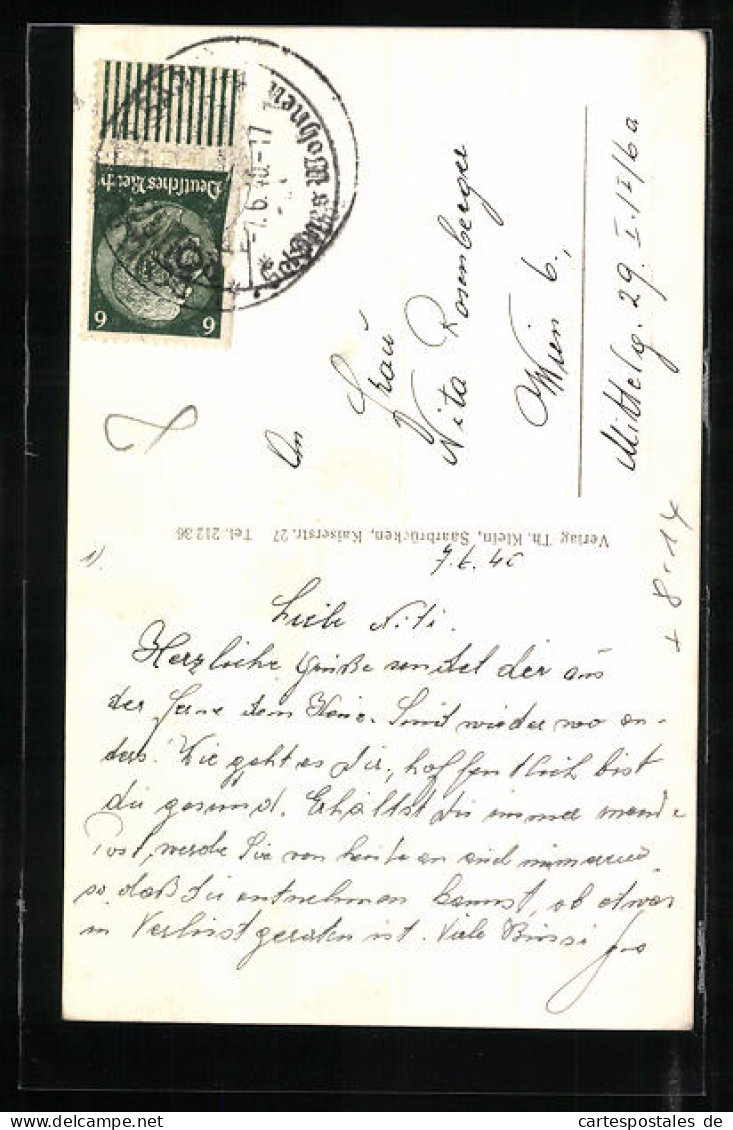 Deutsches Reich
6 6
-7.6.40-17
schönes Wohnen
An
Frau
Nita Rosenberger
Wien 6.,
Mittelg. 29. I. 1I/6a
+ 8-14
Verlag Th. Klein, Saarbrücken, Kaiserstr. 27 Tel. 21236
1)
7.6.40
Liebe Niti.
Herzliche Grüße sendet dir aus
der Ferne dein Sind wieder wo an-
ders. Wie geht es dir, hoffentlich bist
du gesund. Erhältst du immer meine
Post, werde Sie von heute an
so daß du entnehmen kannst, ob etwas
in Verlust geraten ist. Viele Bussi
www.cartespostales.de